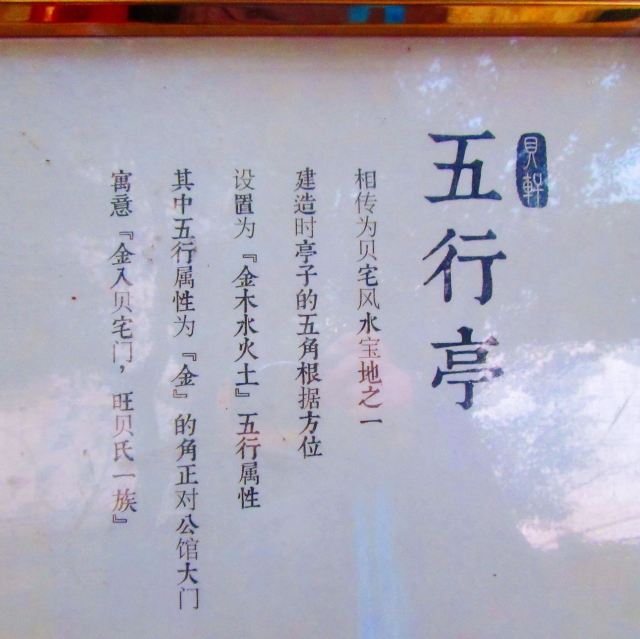 貝軒
五行亭
相传为贝宅风水宝地之一
建造时亭子的五角根据方位
设置为『金木水火土』五行属性
其中五行属性为『金』的角正对公馆大门
寓意『金入贝宅门，旺贝氏一族』